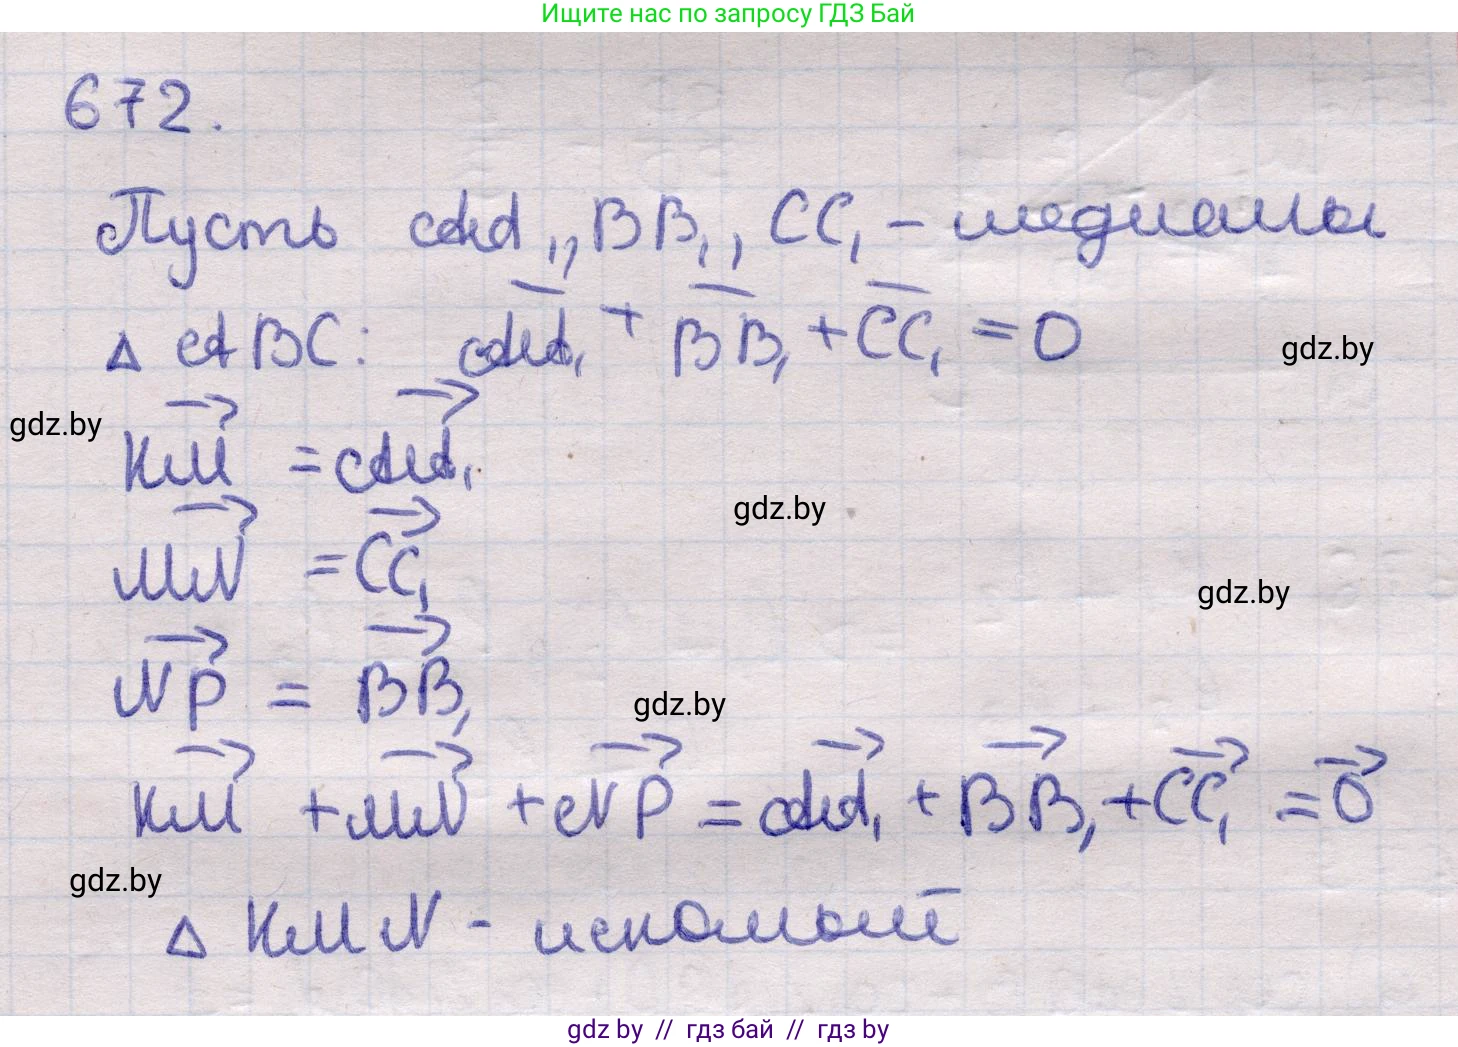 Ищите нас по запросу ГДЗ Бай
672.
Пусть AA₁, BB₁, CC₁ – медианы
△ ABC: A̅A̅₁ + B̅B̅₁ + C̅C̅₁ = 0
gdz.by
KM⃗ = AA₁⃗
gdz.by
MN⃗ = CC₁⃗
gdz.by
gdz.by
NP⃗ = BB₁⃗
gdz.by
KM⃗ + MN⃗ + NP⃗ = AA₁⃗ + BB₁⃗ + CC₁⃗ = 0⃗
gdz.by
△ KMN - искомый
gdz.by // гдз бай // гдз by